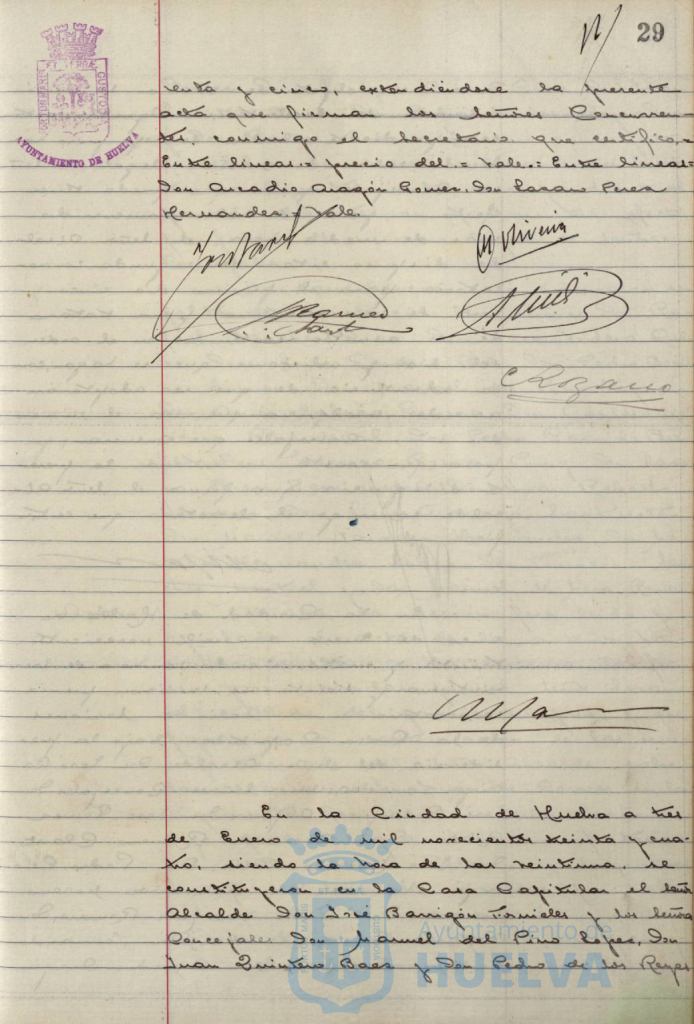 29
PORTUS MARIS ET TERRAE CUSTODIA
AYUNTAMIENTO DE HUELVA
renta y cinco, extendiendose la presente
acta que firman los señores Concurren-
tes, conmigo el Secretario que certifico.=
Entre lineas.= precio del.= Vale.= Entre lineas=
Don Arcadio Aragón Gomez, Don Lazaro Perez
Hernandez.= Vale.
M Oliveira
C Lozano
En la Ciudad de Huelva a tres
de Enero de mil novecientos treinta y cua-
tro, siendo la hora de las veintiuna, se
constituyeron en la Casa Capitular el señor
Alcalde Don José Barrigón Fornieles y los señores
Concejales Don Manuel del Pino López, Don
Juan Quintero Baez y Don Pedro de los Reyes
Ayuntamiento de
HUELVA